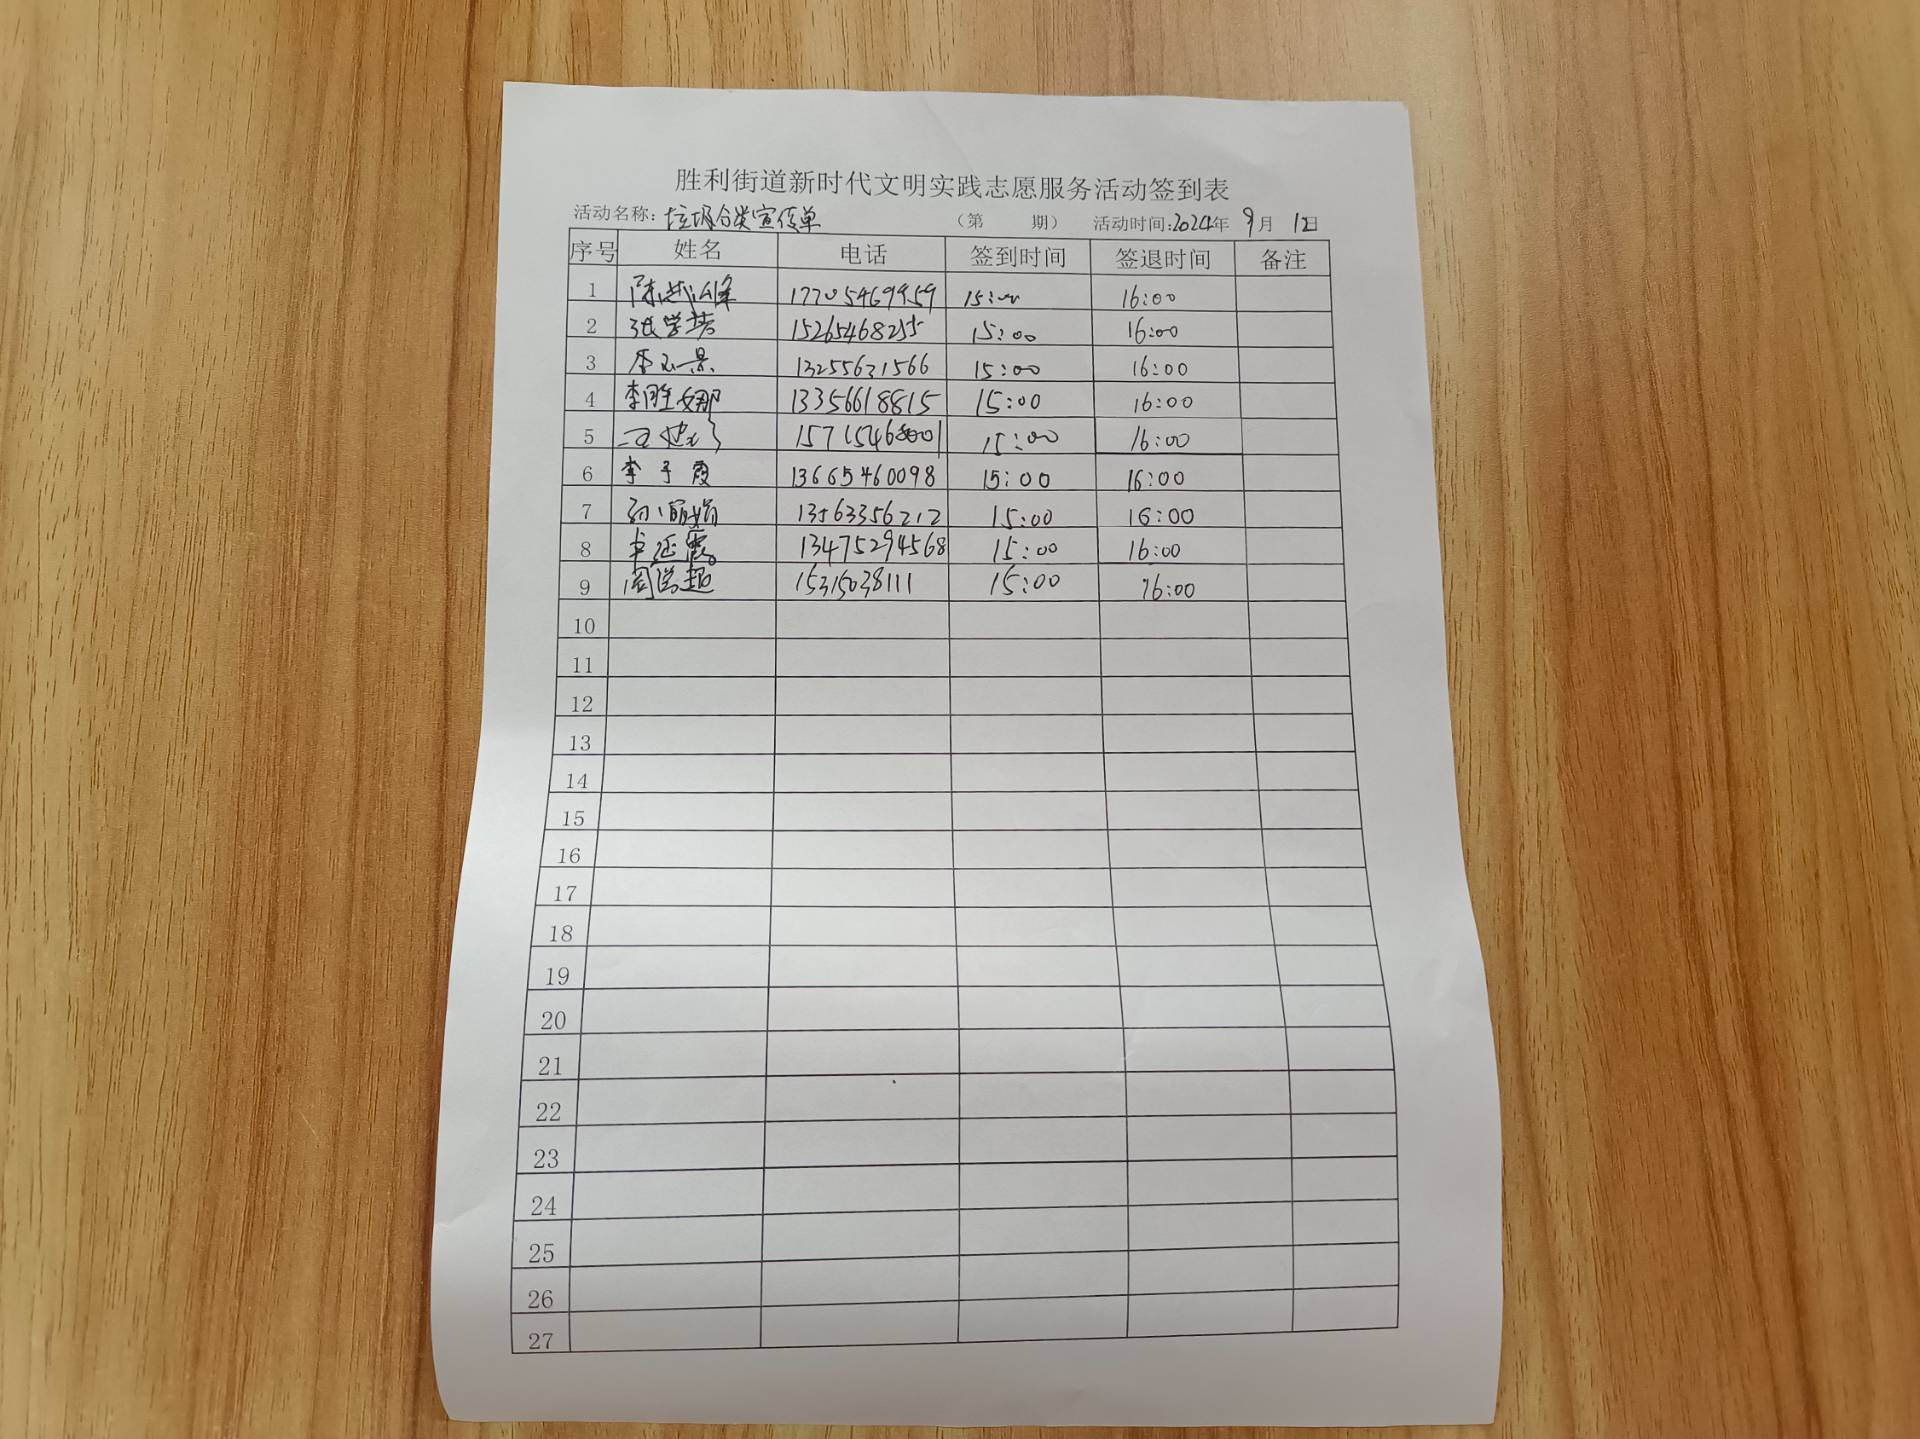 胜利街道新时代文明实践志愿服务活动签到表
活动名称：垃圾分类宣传单 （第 期） 活动时间:2024年 9月 1日
序号 姓名 电话 签到时间 签退时间 备注
1 陈 峰 17705469959 15:00 16:00
2 张学 15265468255 15:00 16:00
3 李 景 13255631566 15:00 16:00
4 李胜娜 13356618815 15:00 16:00
5 15:00 16:00
6 李子霞 13665460098 15:00 16:00
7 孙丽娟 13563356212 15:00 16:00
8 征霞 13475294568 15:00 16:00
9 周学超 15315038111 15:00 16:00
10
11
12
13
14
15
16
17
18
19
20
21
22
23
24
25
26
27